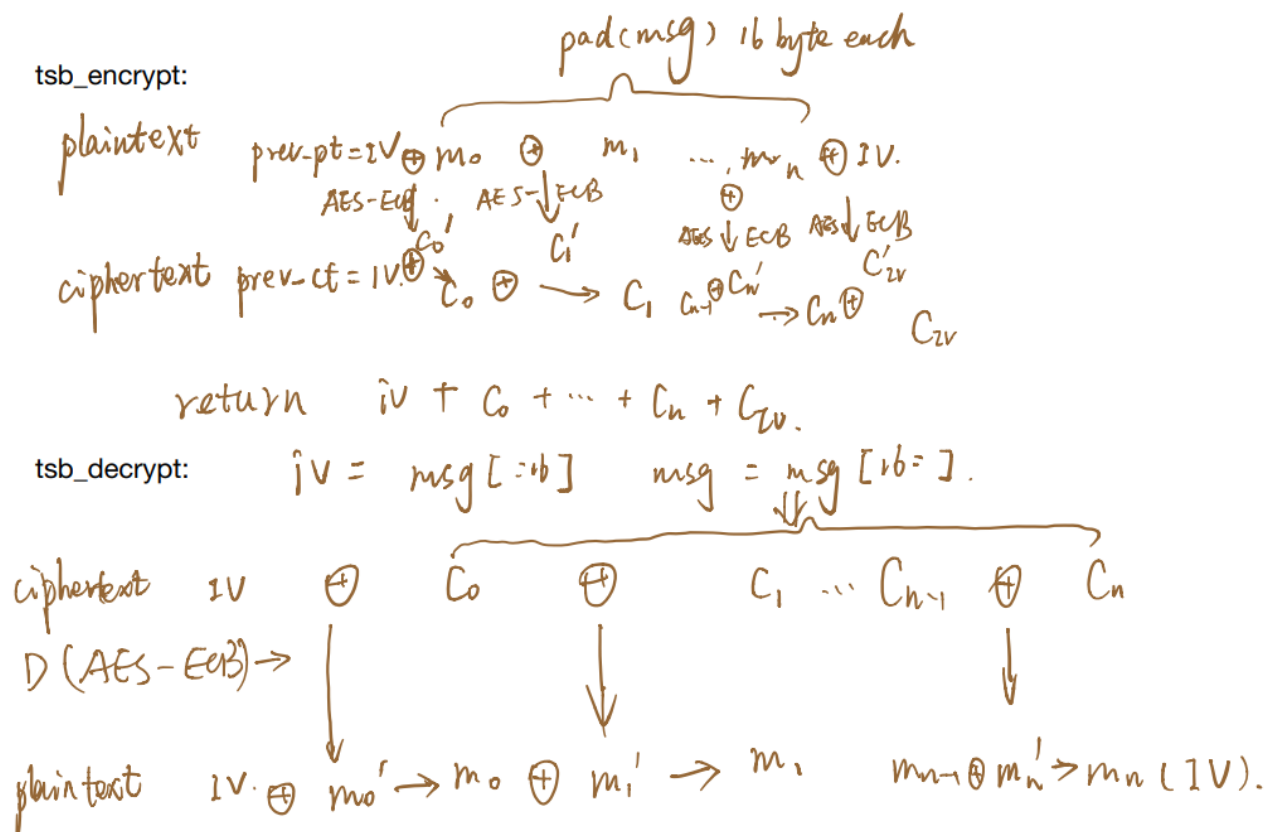 pad(msg) 16 byte each
tsb_encrypt:
plaintext prev-pt=IV⊕m₀ ⊕ m₁ ... mₙ ⊕ IV.
AES-ECB. AES-ECB ⊕ AES ECB AES ECB
C₀' C₁' Cₙ' C'IV
ciphertext prev-ct=IV.⊕→C₀ ⊕ → C₁ Cₙ₋₁⊕ → Cₙ⊕ CIV
return iv + C₀ + ... + Cₙ + CIV.
tsb_decrypt: iv = msg[:16] msg = msg[16:].
ciphertext IV ⊕ C₀ ⊕ C₁ ... Cₙ₋₁ ⊕ Cₙ
D(AES-ECB)→
plaintext IV.⊕ m₀' → m₀ ⊕ m₁' → m₁ mₙ₋₁⊕mₙ'→mₙ(IV).